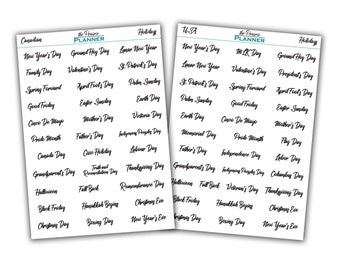 Canadian
the Prairie
PLANNER
Holidays
New Year's Day Ground Hog Day Lunar New Year
Family Day Valentine's Day St. Patrick's Day
Spring Forward April Fool's Day Palm Sunday
Good Friday Easter Sunday Earth Day
Cinco De Mayo Mother's Day Victoria Day
Pride Month Father's Day Indigenous Peoples Day
Canada Day Civic Holiday Labour Day
Grandparent's Day Truth and Reconciliation Day Thanksgiving Day
Halloween Fall Back Remembrance Day
Black Friday Hanukkah Begins Christmas Eve
Christmas Day Boxing Day New Year's Eve
USA
the Prairie
PLANNER
Holidays
New Year's Day MLK Day Ground Hog Day
Lunar New Year Valentine's Day President's Day
St. Patrick's Day Spring Forward April Fool's Day
Palm Sunday Good Friday Easter Sunday
Earth Day Cinco De Mayo Mother's Day
Memorial Day Pride Month
Father's Day Independence Day Labour Day
Grandparent's Day Indigenous Peoples Day Columbus Day
Halloween Fall Back Veteran's Day Thanksgiving Day
Black Friday Hanukkah Begins Christmas Eve
Christmas Day Boxing Day New Year's Eve